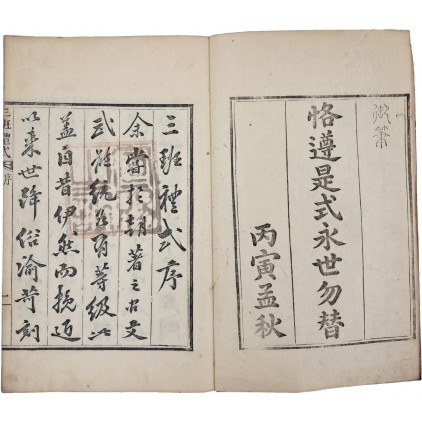 御筆
恪遵是式永世勿替
丙寅孟秋
三班禮式序
余嘗於朝著之文
武統有等級此
蓋自昔伊然而挽近
以來世降俗渝苛刻
三班禮式 序
一